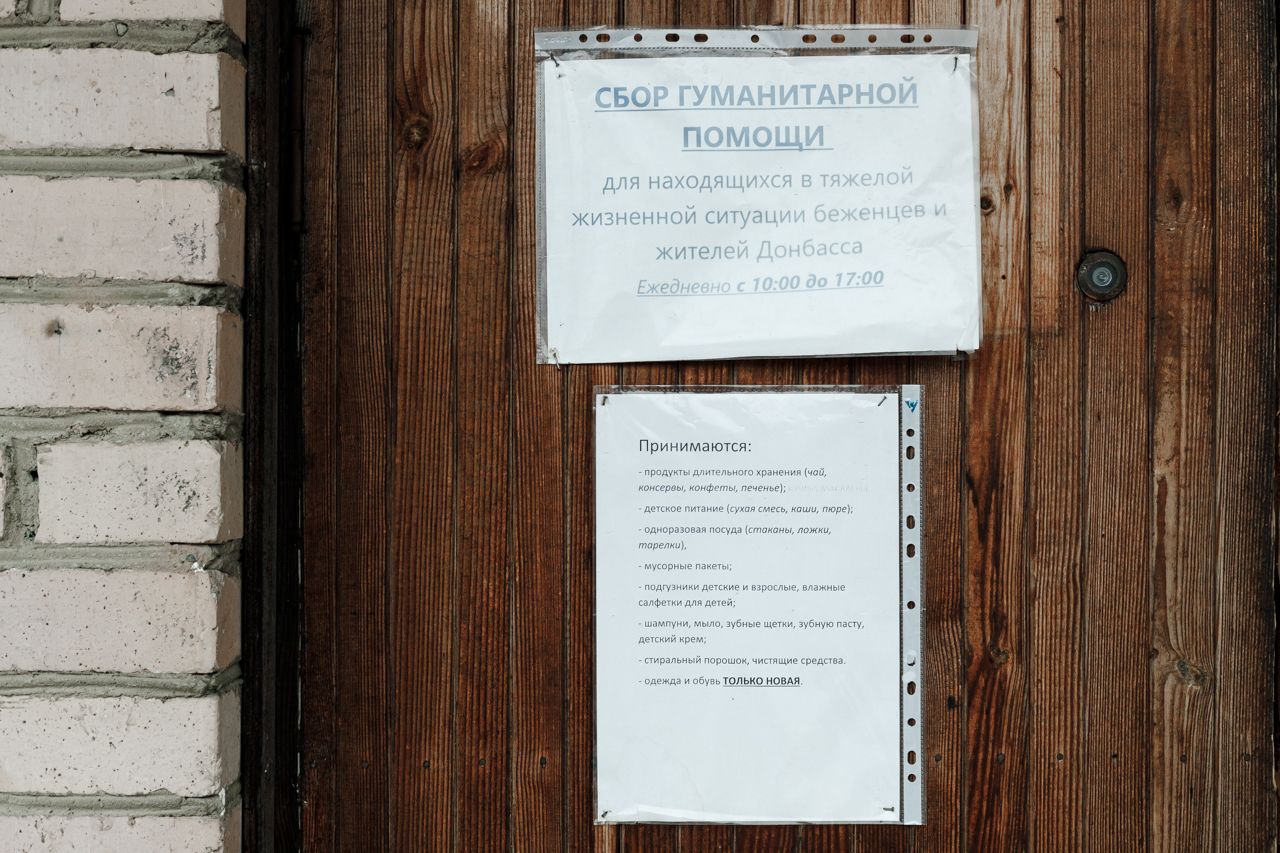 СБОР ГУМАНИТАРНОЙ
ПОМОЩИ
для находящихся в тяжелой
жизненной ситуации беженцев и
жителей Донбасса
Ежедневно с 10:00 до 17:00
Принимаются:
- продукты длительного хранения (чай,
консервы, конфеты, печенье);
- детское питание (сухая смесь, каши, пюре);
- одноразовая посуда (стаканы, ложки,
тарелки),
- мусорные пакеты;
- подгузники детские и взрослые, влажные
салфетки для детей;
- шампуни, мыло, зубные щетки, зубную пасту,
детский крем;
- стиральный порошок, чистящие средства.
- одежда и обувь ТОЛЬКО НОВАЯ.